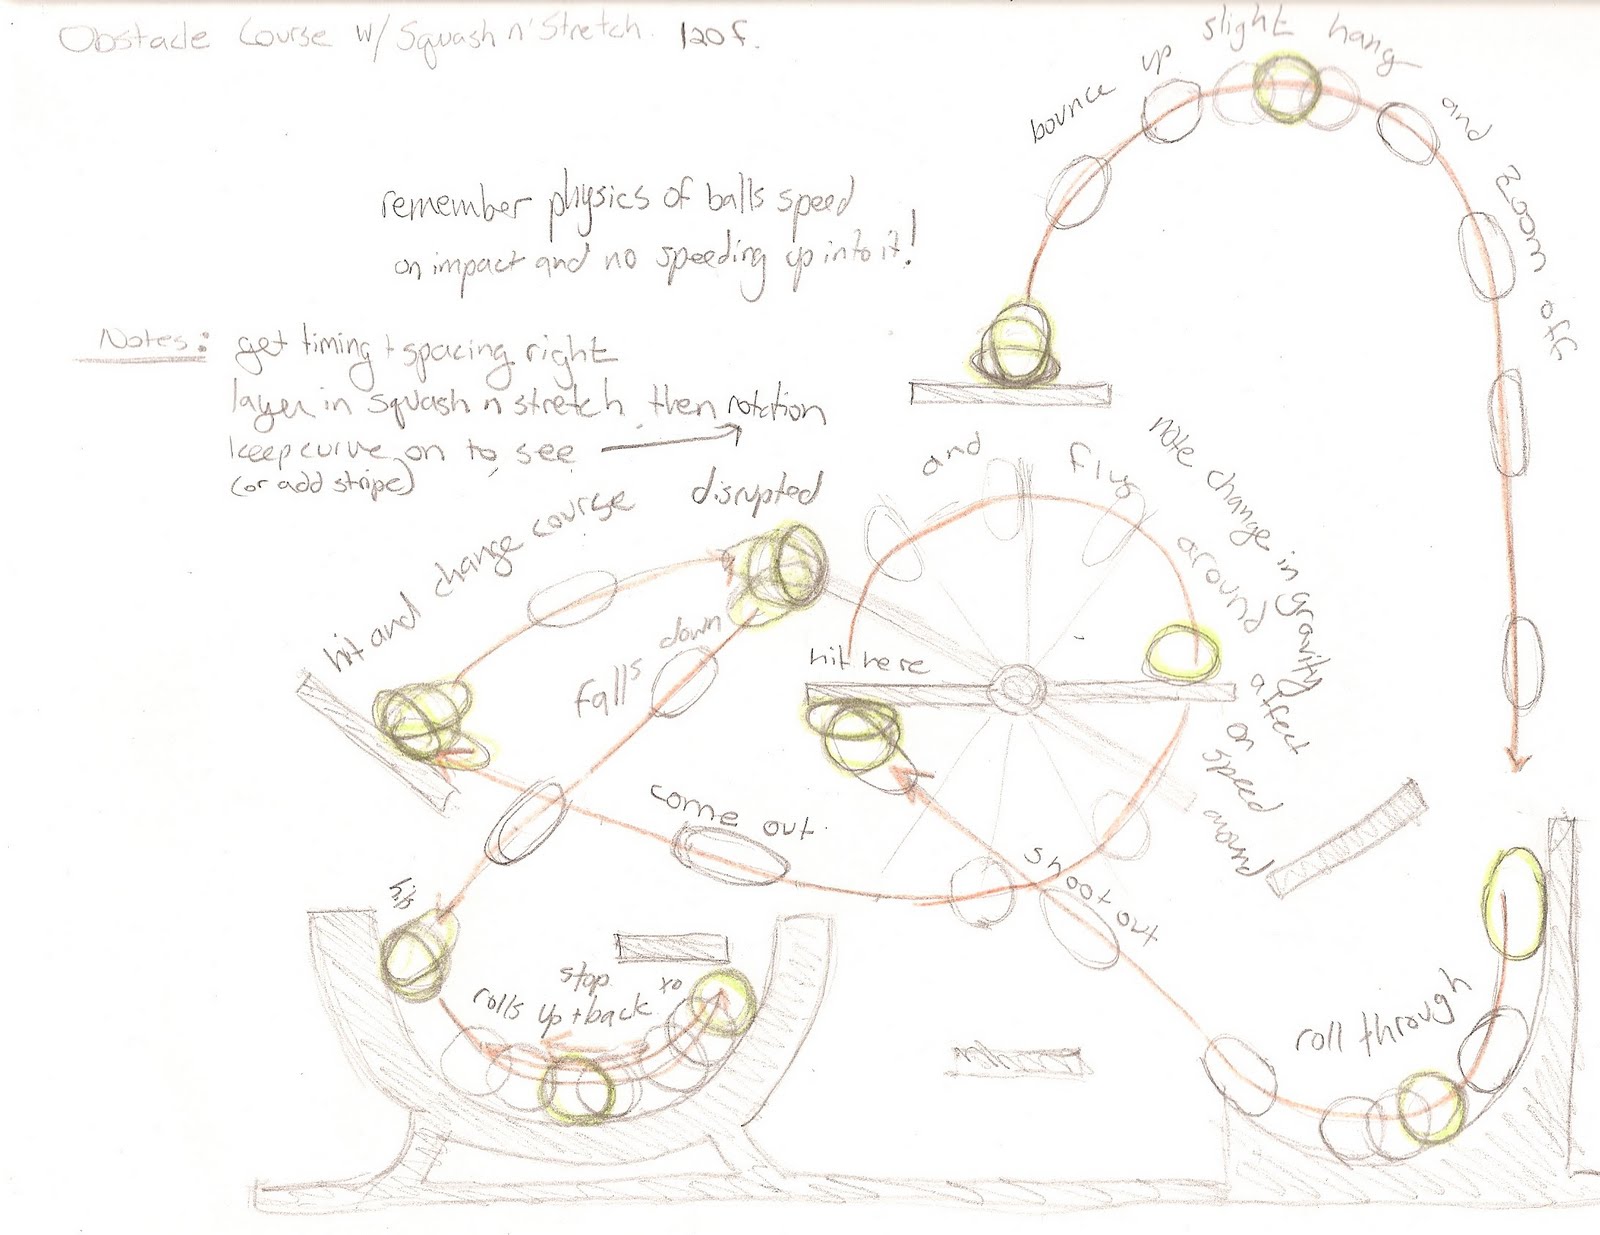 Obstacle Course w/ Squash n' Stretch. 120f.
remember physics of balls speed
on impact and no speeding up into it!
Notes: get timing + spacing right
layer in squash n stretch, then rotation
keep curve on to see
(or add stripe)
bounce up slight hang and zoom off
hit and change course
disrupted
falls down
and flys around
note change in gravity affect on speed around
hit here
come out
shoot out
hit
stop
rolls up + back
roll through